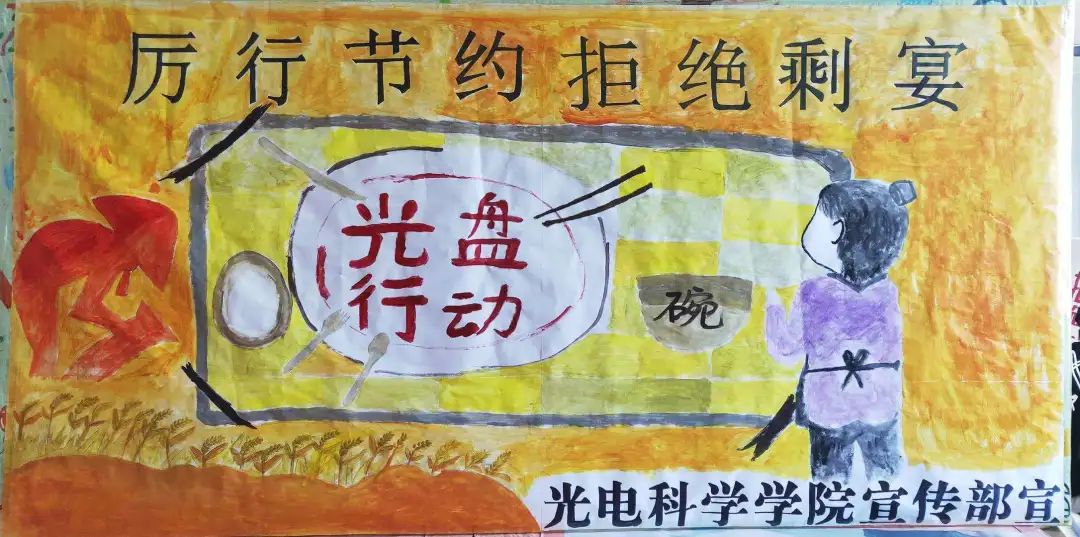 厉行节约拒绝剩宴
光盘
行动
碗
光电科学学院宣传部宣